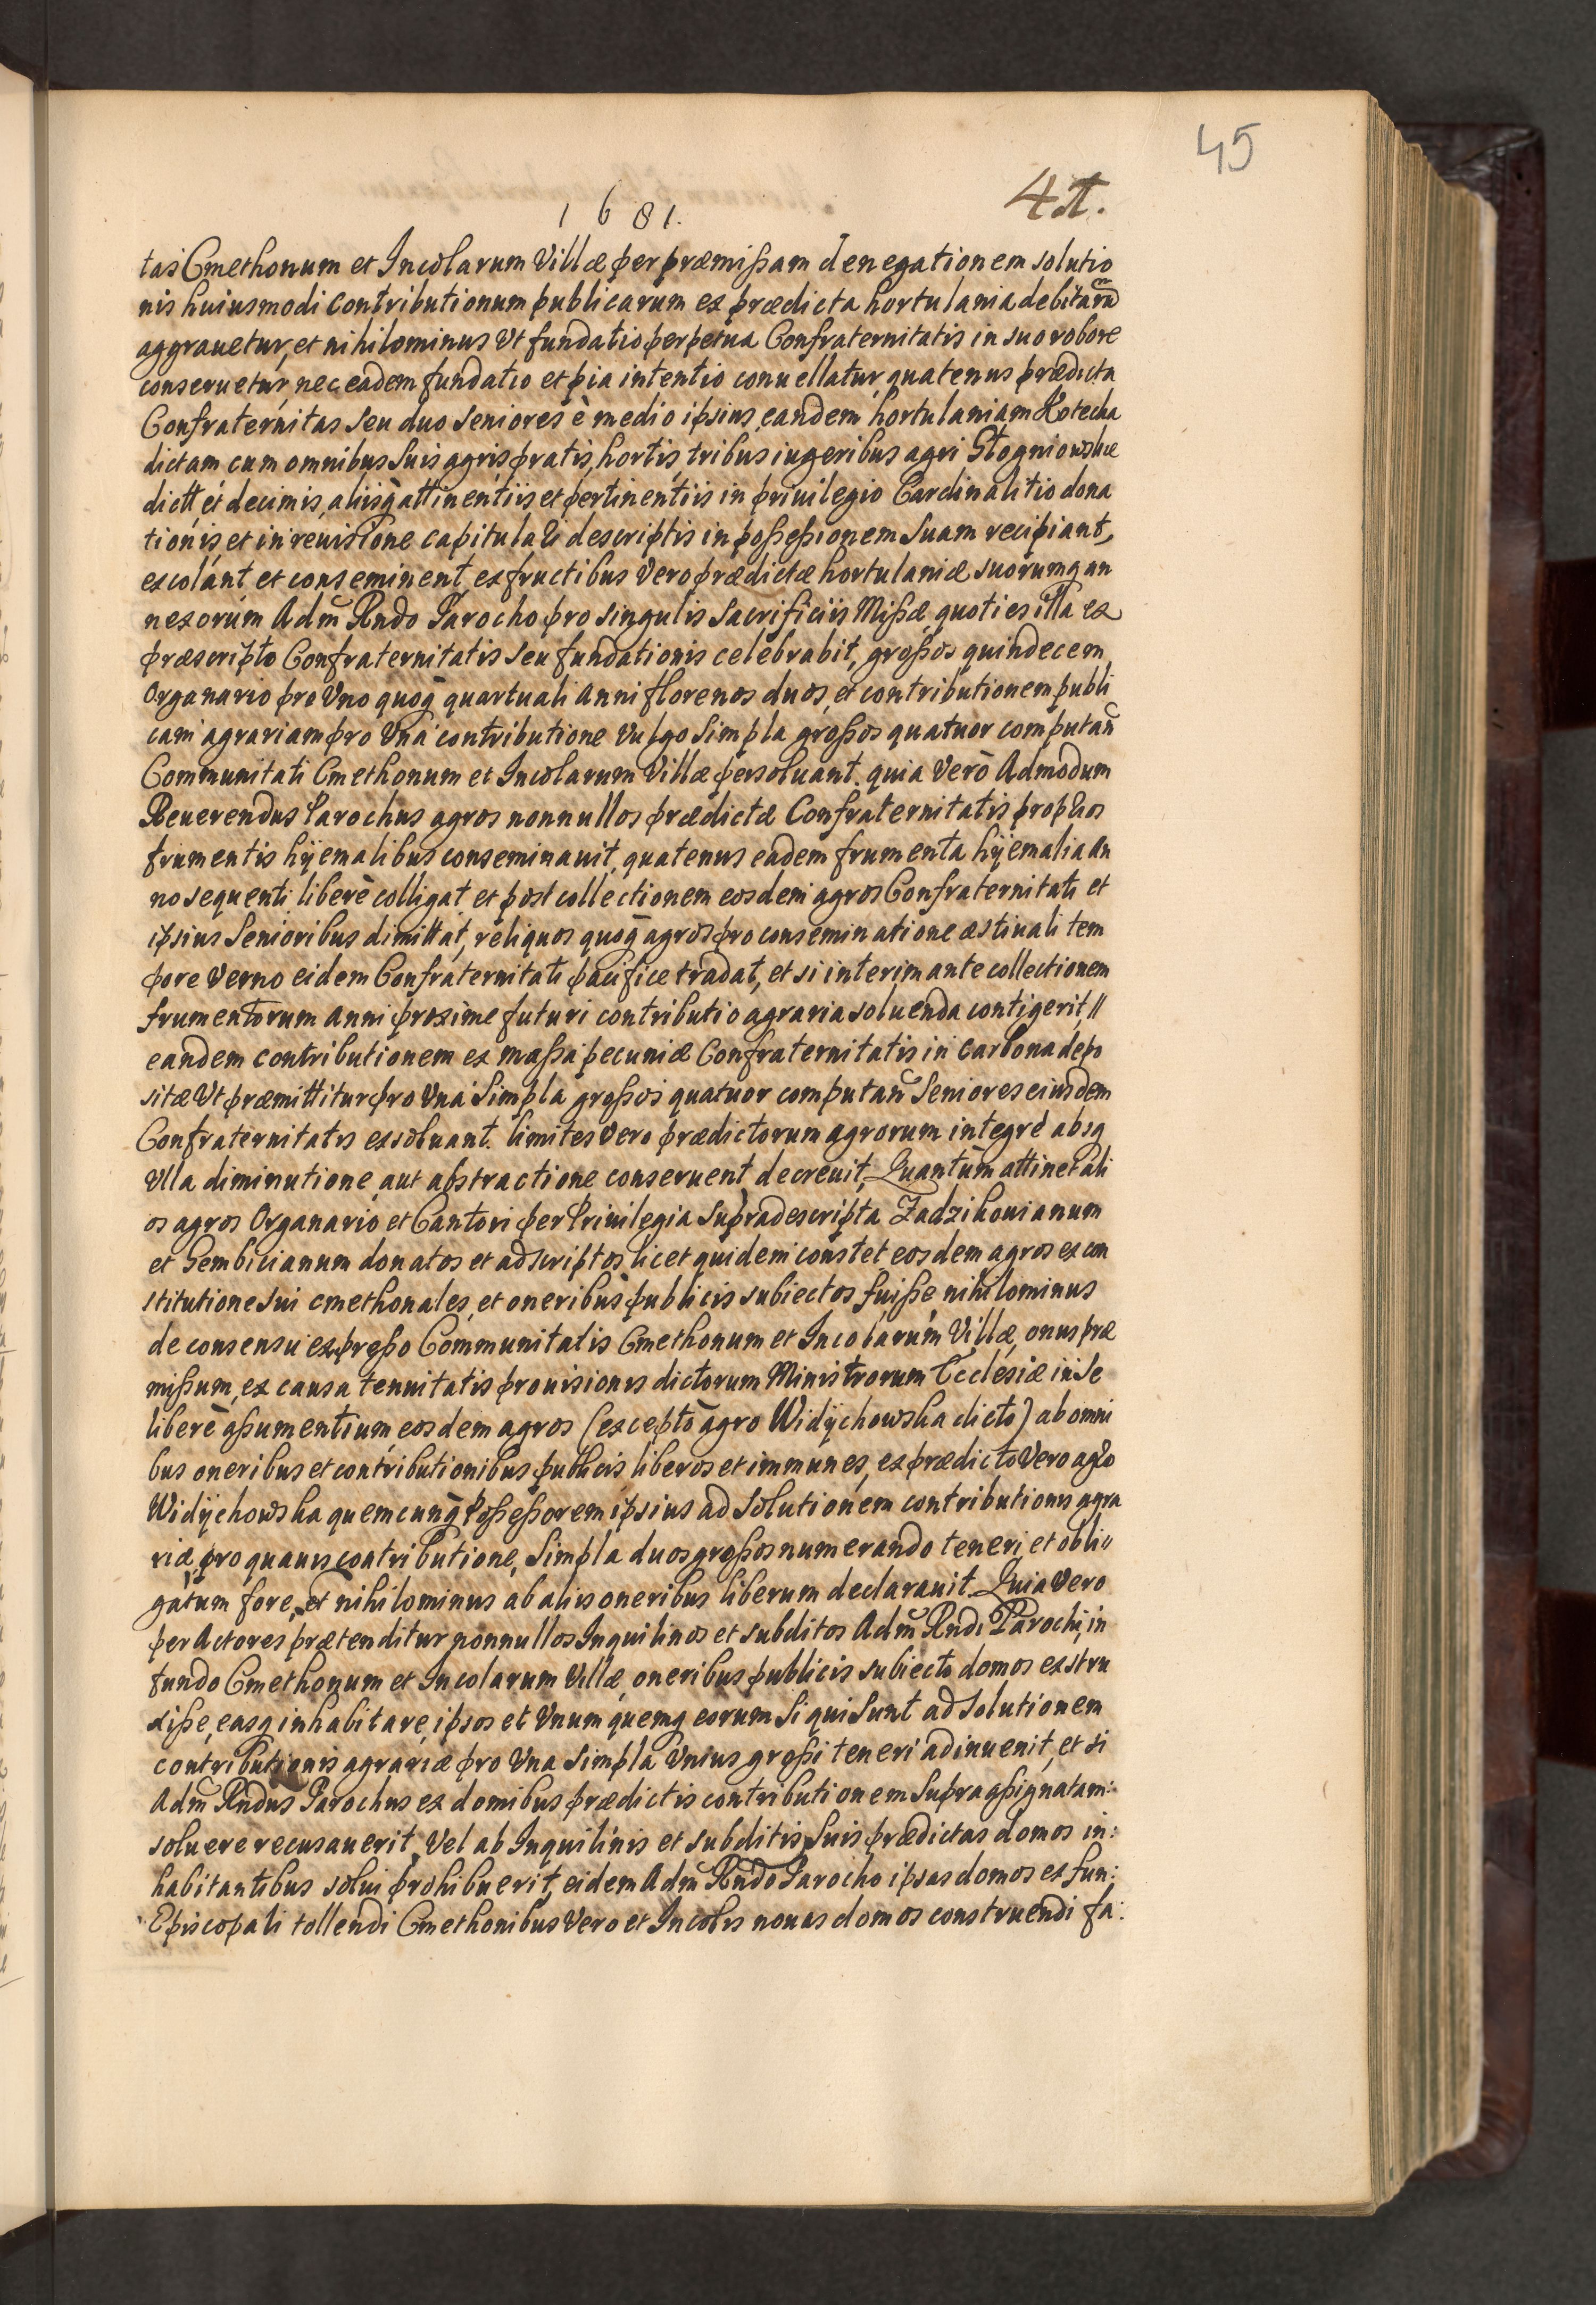 45
41.
1681.
tas Cmethonum et Incolarum Villæ per præmißam denegationem solutio
nis huiusmodi contributionum publicarum ex prædicta hortulania debitarū
aggrauetur, et nihilominus Vt fundatio perpetua Confraternitatis in suo robore
conseruetur, nec eadem fundatio et pia intentio conuellatur, quatenus prædicta
Confraternitas seu duo Seniores è medio ipsius, eandem hortulaniam Kotecka
dictam cum omnibus suis agris, pratis, hortis, tribus iugeribus agri Stogniowskie
dictt, et decimis, aliisq̃ attinentiis et pertinentiis in priuilegio Cardinalitio dona
tionis, et in reuisione capitulari descriptis in poßeßionem Suam recipiant,
excolant et conseminent, ex fructibus Vero prædictæ hortulaniæ suorumq an
nexorum Adm̃ Rndo Parocho pro singulis Sacrificiis Mißæ, quoties illa ex
præscripto Confraternitatis seu fundationis celebrabit, großos quindecem,
Organario pro Vno quoq̃ quartuali Anni florenos duos, et contributionem publi
cam agrariam pro Vna contributione Vulgo Simpla großos quatuor computañ
Communitati Cmethonum et Incolarum Villæ persoluant. quia Verò Admodum
Reuerendus Parochus agros nonnullos prædictæ Confraternitatis proprios
frumentis hÿemalibus conseminauit, quatenus eadem frumenta hÿemalia an
no sequenti liberè colligat et post collectionem eosdem agros Confraternitati et
ipsius Senioribus dimittat, reliquos quoq̃ agros pro conseminatione æstiuali tem
pore Verno eidem Confraternitati pacifice tradat, et si interim ante collectionem
frumentorum Anni proxime futuri contributio agraria soluenda contigerit, //
eandem contributionem ex maßa pecuniæ Confraternitatis in Carbona depo
sitæ Vt præmittitur pro Vna Simpla großos quatuor computañ Seniores eiusdem
Confraternitatis exsoluant. limites Vero prædictorum agrorum integrè absq
Vlla diminutione aut abstractione conseruent, decreuit, Quantum attinet ali
os agros Organario et Cantori per Priuilegia Supradescripta Zadzikouianum
et Gembicianum donatos et adscriptos, licet quidem constet eosdem agros ex con
stitutione sui cmethonales, et oneribus publicis subiectos fuiße, nihilominus
de consensu expreßo Communitatis Cmethonum et Incolarum Villæ, onus præ
mißum, ex causa tenuitatis prouisionis dictorum Ministrorum Ecclesiæ in Se
liberè aßumentium, eosdem agros (exceptò agro Widÿchowska dicto) ab omni
bus oneribus et contributionibus publicis liberos et immunes, ex prædicto Vero agro
Widÿchowska quemcunq̃ Poßeßorem ipsius ad Solutionem contributionis agra
riæ, pro quauis contributione, Simpla duos großos numerando teneri, et obli//
gatum fore, et nihilominus ab aliis oneribus liberum declarauit. Quia Vero
per Actores prætenditur nonnullos Inquilinos et subditos Adm̃ Rndi Parochi, in
fundo Cmethonum et Incolarum Villæ, oneribus publicis subiecto domos exstru
xiße, easq inhabitare, ipsos et Vnum quemq eorum Si qui Sunt ad Solutionem
contributionis agrariæ pro Vna Simpla Vnius großi teneri adinuenit, et si
Adm̃ Rndus Parochus ex domibus prædictis contributionem Supra aßignatam:
soluere recusauerit, Vel ab Inquilinis et subditis Suis prædictas domos in:
habitantibus solui prohibuerit, eidem Adm̃ Rndo Parocho ipsas domos ex fun:
Episcopali tollendi Cmethonibus Vero et Incolis nouas domos construendi fa: